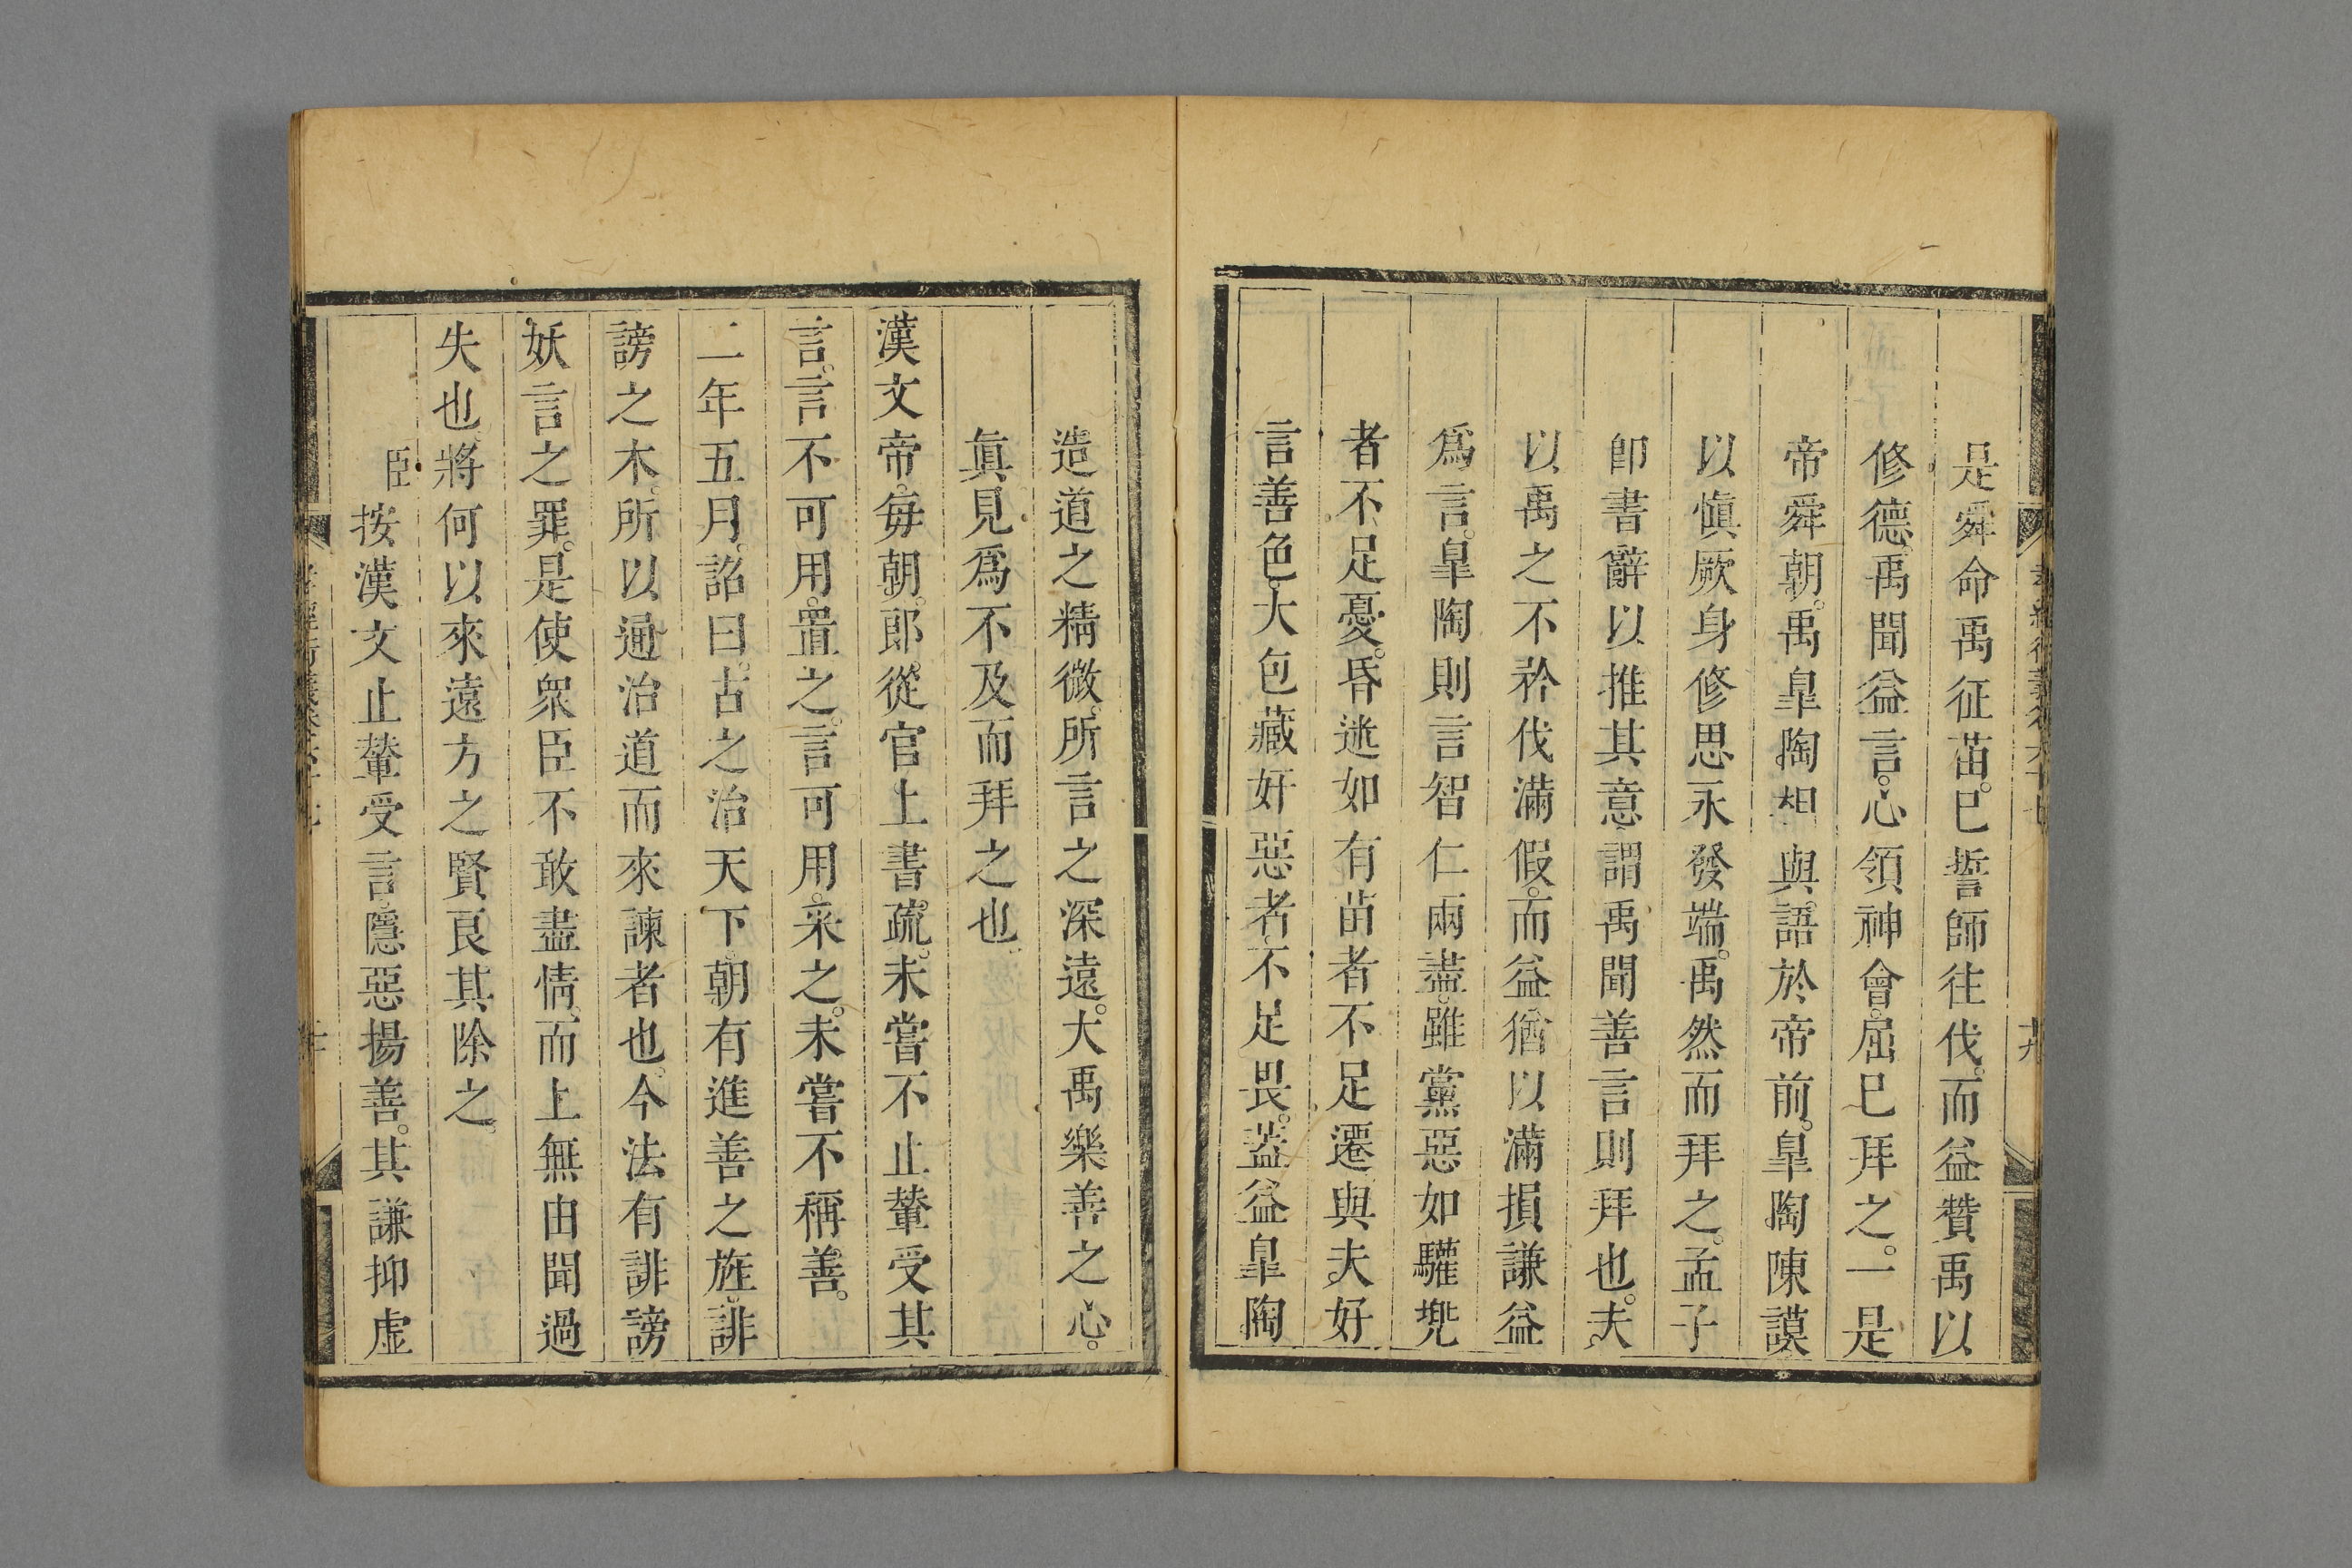 是舜命禹征苗。已誓師往伐。而益贊禹以
修德。禹聞益言。心領神會。屈已拜之。一是
帝舜朝。禹臯陶相與語於帝前。臯陶陳謨
以愼厥身修思永發端。禹然而拜之。孟子
卽書辭以推其意謂禹聞善言則拜也。夫
以禹之不矜伐滿假。而益猶以滿損謙益
爲言。臯陶則言智仁兩盡。雖黨惡如驩兜
者不足憂。昏迷如有苗者不足遷與夫好
言善色大包藏奸惡者。不足畏。蓋益臯陶
造道之精微。所言之深遠。大禹樂善之心。
眞見爲不及而拜之也
漢文帝。每朝。郎從官上書疏。未嘗不止輦受其
言。言不可用。置之。言可用。采之。未嘗不稱善。
二年五月。詔曰。古之治天下。朝有進善之旌。誹
謗之木。所以通治道而來諫者也。今法有誹謗
妖言之罪。是使衆臣不敢盡情。而上無由聞過
失也。將何以來遠方之賢良其除之。
臣按漢文止輦受言。隱惡揚善。其謙抑虛